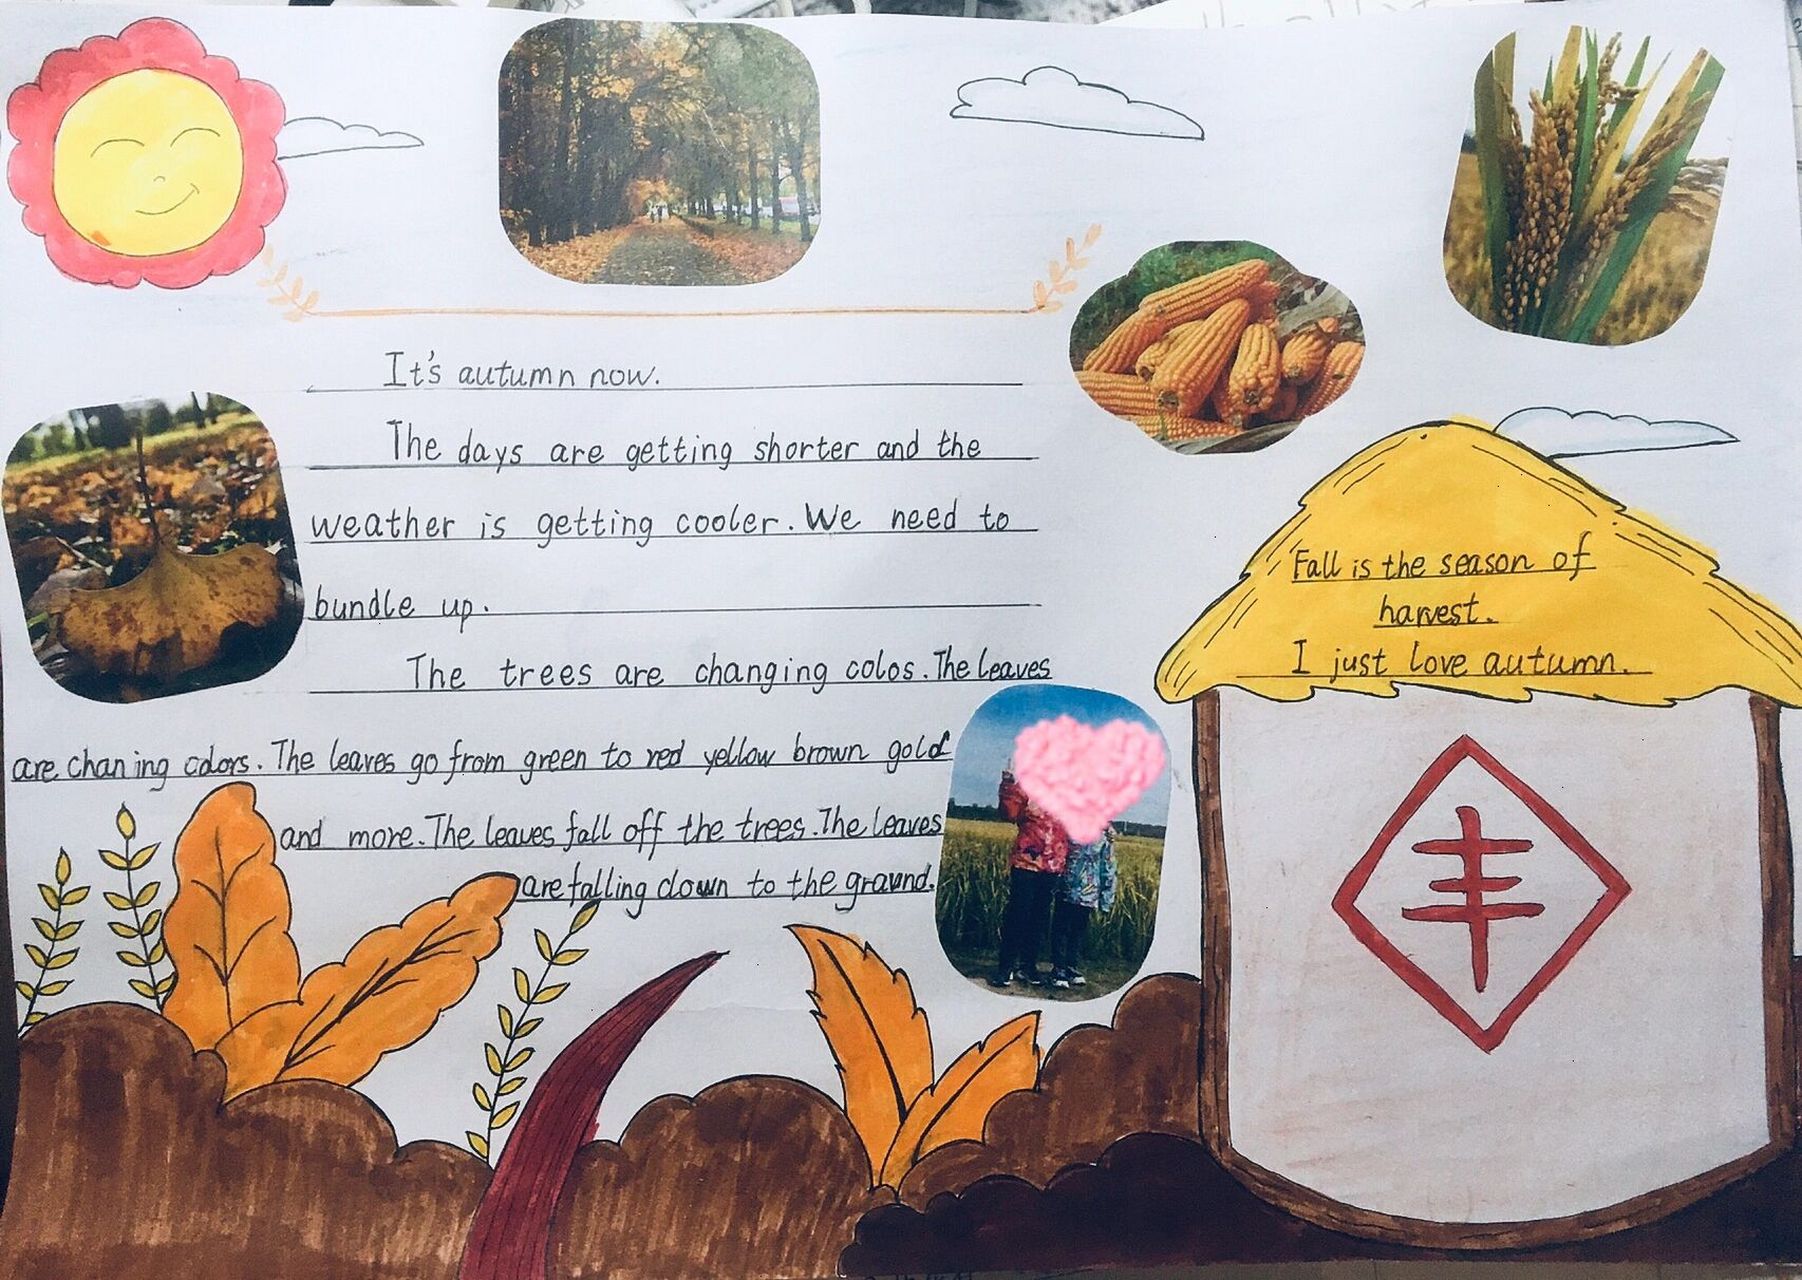 It's autumn now.
The days are getting shorter and the
weather is getting cooler. We need to
bundle up.
The trees are changing colos. The leaves
are chan ing colors. The leaves go from green to red yellow brown gold
and more. The leaves fall off the trees. The leaves
are falling down to the graund.
Fall is the season of
harvest.
I just love autumn.
丰